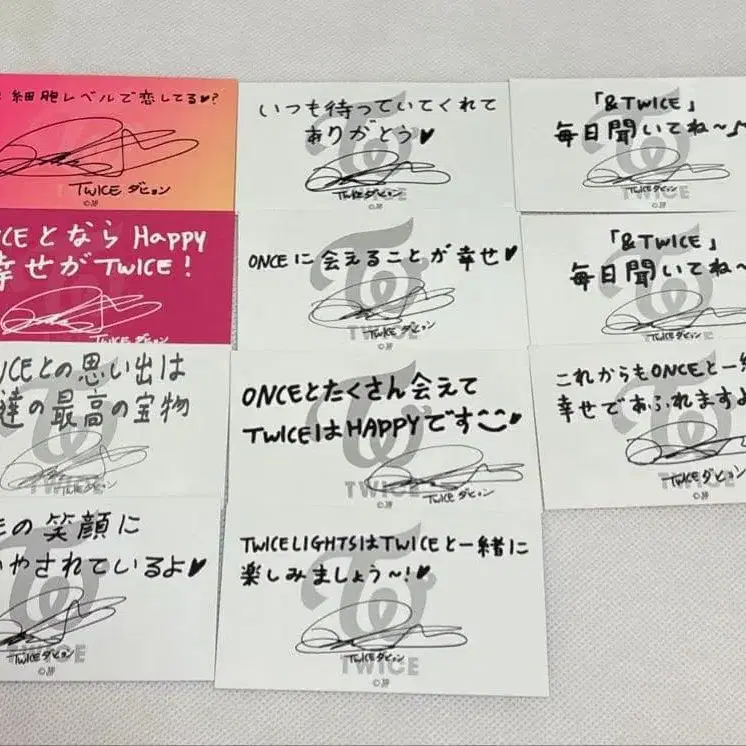 細胞レベルで恋してる♥?
TWICE ダヒョン
©JYP
いつも待っていてくれて
ありがとう♥
TWICE ダヒョン
TWICE
©JYP
「&TWICE」
毎日聞いてね〜♪
TWICE ダヒョン
TWICE
©JYP
ICEとなら HAPPY
幸せがTWICE!
TWICE ダヒョン
ONCEに会えることが幸せ♥
TWICE ダヒョン
TWICE
©JYP
「&TWICE」
毎日聞いてね〜
TWICE ダヒョン
TWICE
©JYP
ICEとの思い出は
達の最高の宝物
TWICE ダヒョン
TWICE
ONCEとたくさん会えて
TWICEはHAPPYです♥
TWICE ダヒョン
TWICE
©JYP
これからもONCEと一緒
幸せであふれますよ
TWICE ダヒョン
TWICE
©JYP
の笑顔に
いやされているよ♥
TWICE ダヒョン
TWICE
©JYP
TWICELIGHTSはTWICEと一緒に
楽しみましょう〜!♥
TWICE ダヒョン
TWICE
©JYP